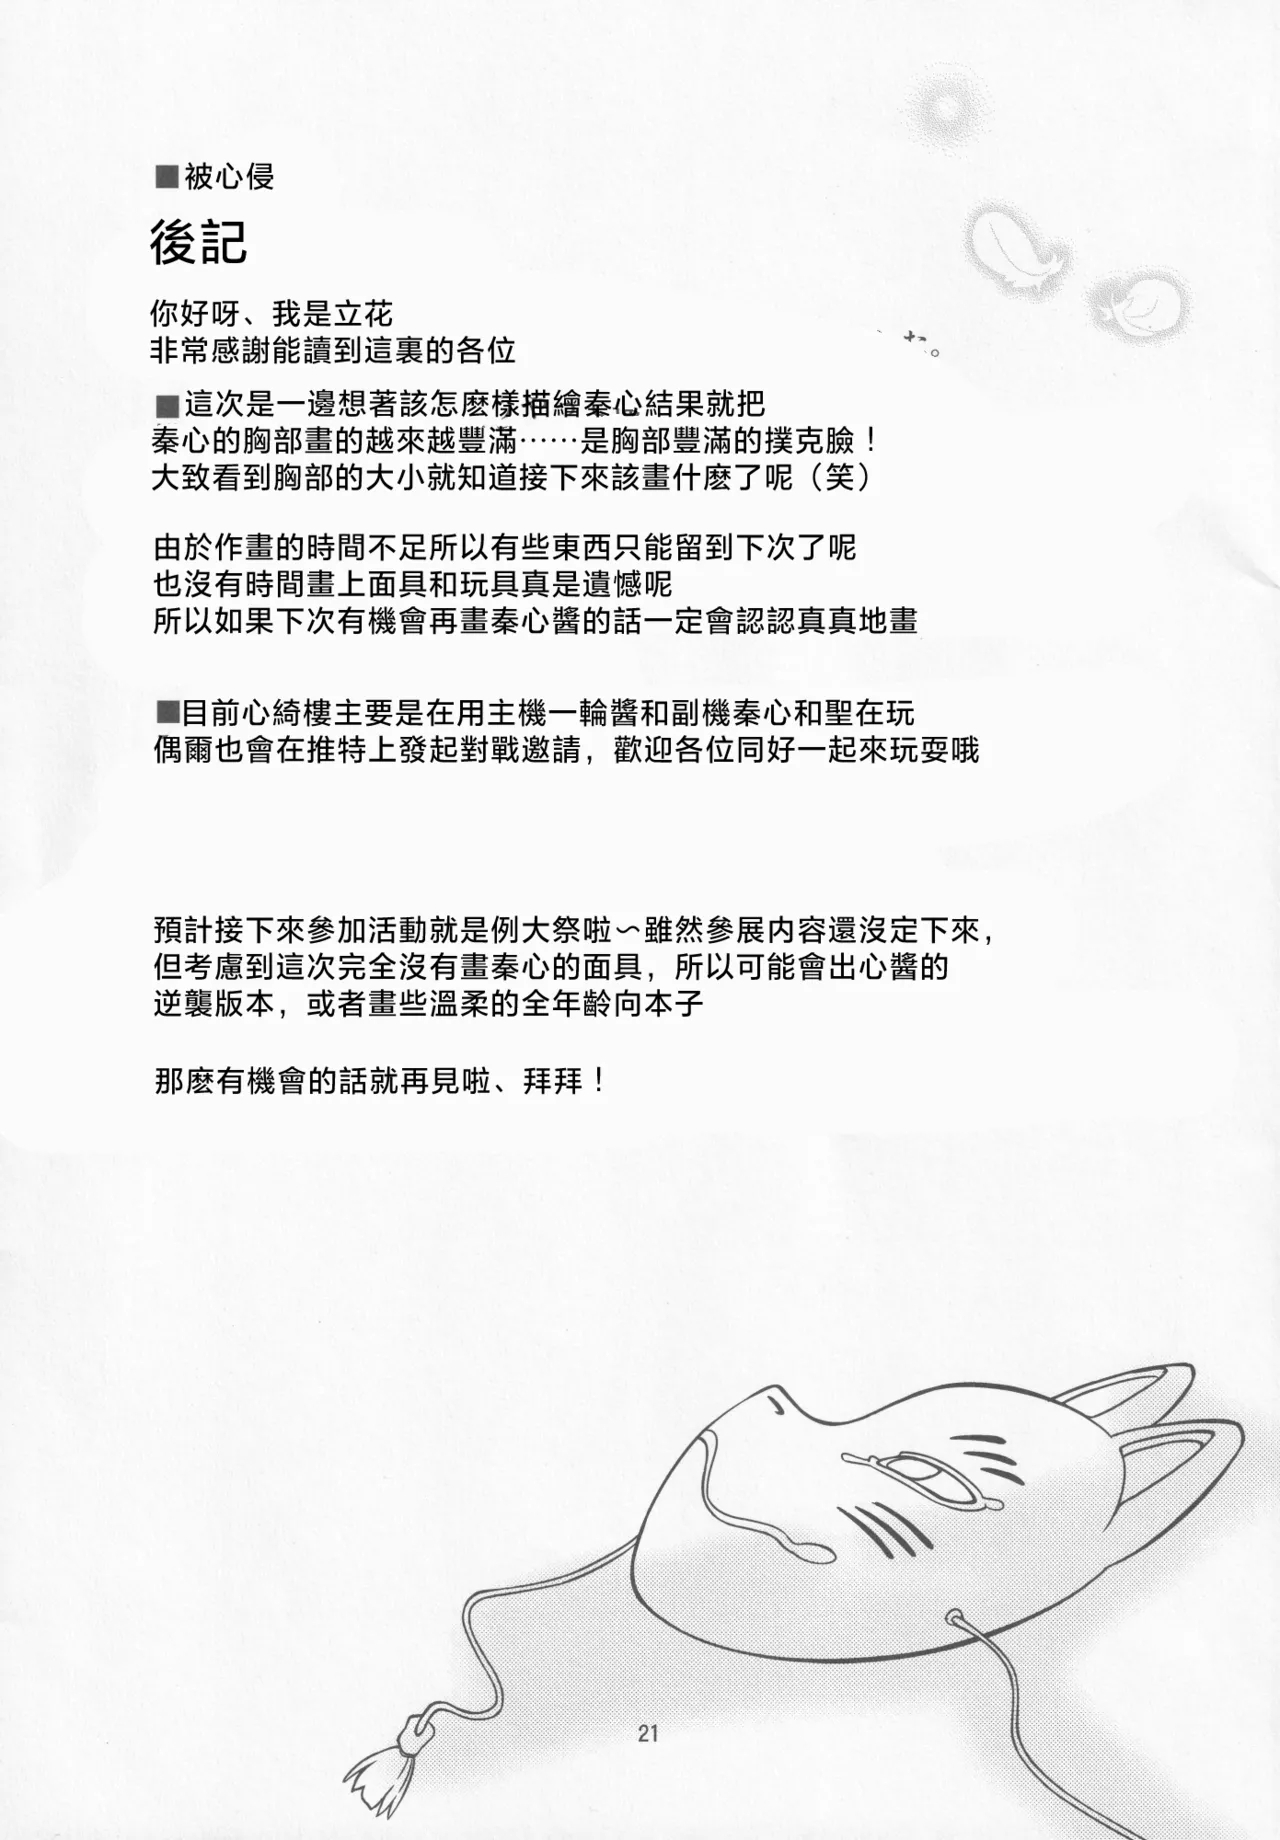 ■被心侵
後記
你好呀、我是立花
非常感謝能讀到這裏的各位
■這次是一邊想著該怎麽樣描繪秦心結果就把
秦心的胸部畫的越來越豐滿……是胸部豐滿的撲克臉！
大致看到胸部的大小就知道接下來該畫什麽了呢（笑）
由於作畫的時間不足所以有些東西只能留到下次了呢
也沒有時間畫上面具和玩具真是遺憾呢
所以如果下次有機會再畫秦心醬的話一定會認認真真地畫
■目前心綺樓主要是在用主機一輪醬和副機秦心和聖在玩
偶爾也會在推特上發起對戰邀請，歡迎各位同好一起來玩耍哦
預計接下來參加活動就是例大祭啦〜雖然參展内容還沒定下來，
但考慮到這次完全沒有畫秦心的面具，所以可能會出心醬的
逆襲版本，或者畫些溫柔的全年齡向本子
那麽有機會的話就再見啦、拜拜！
21